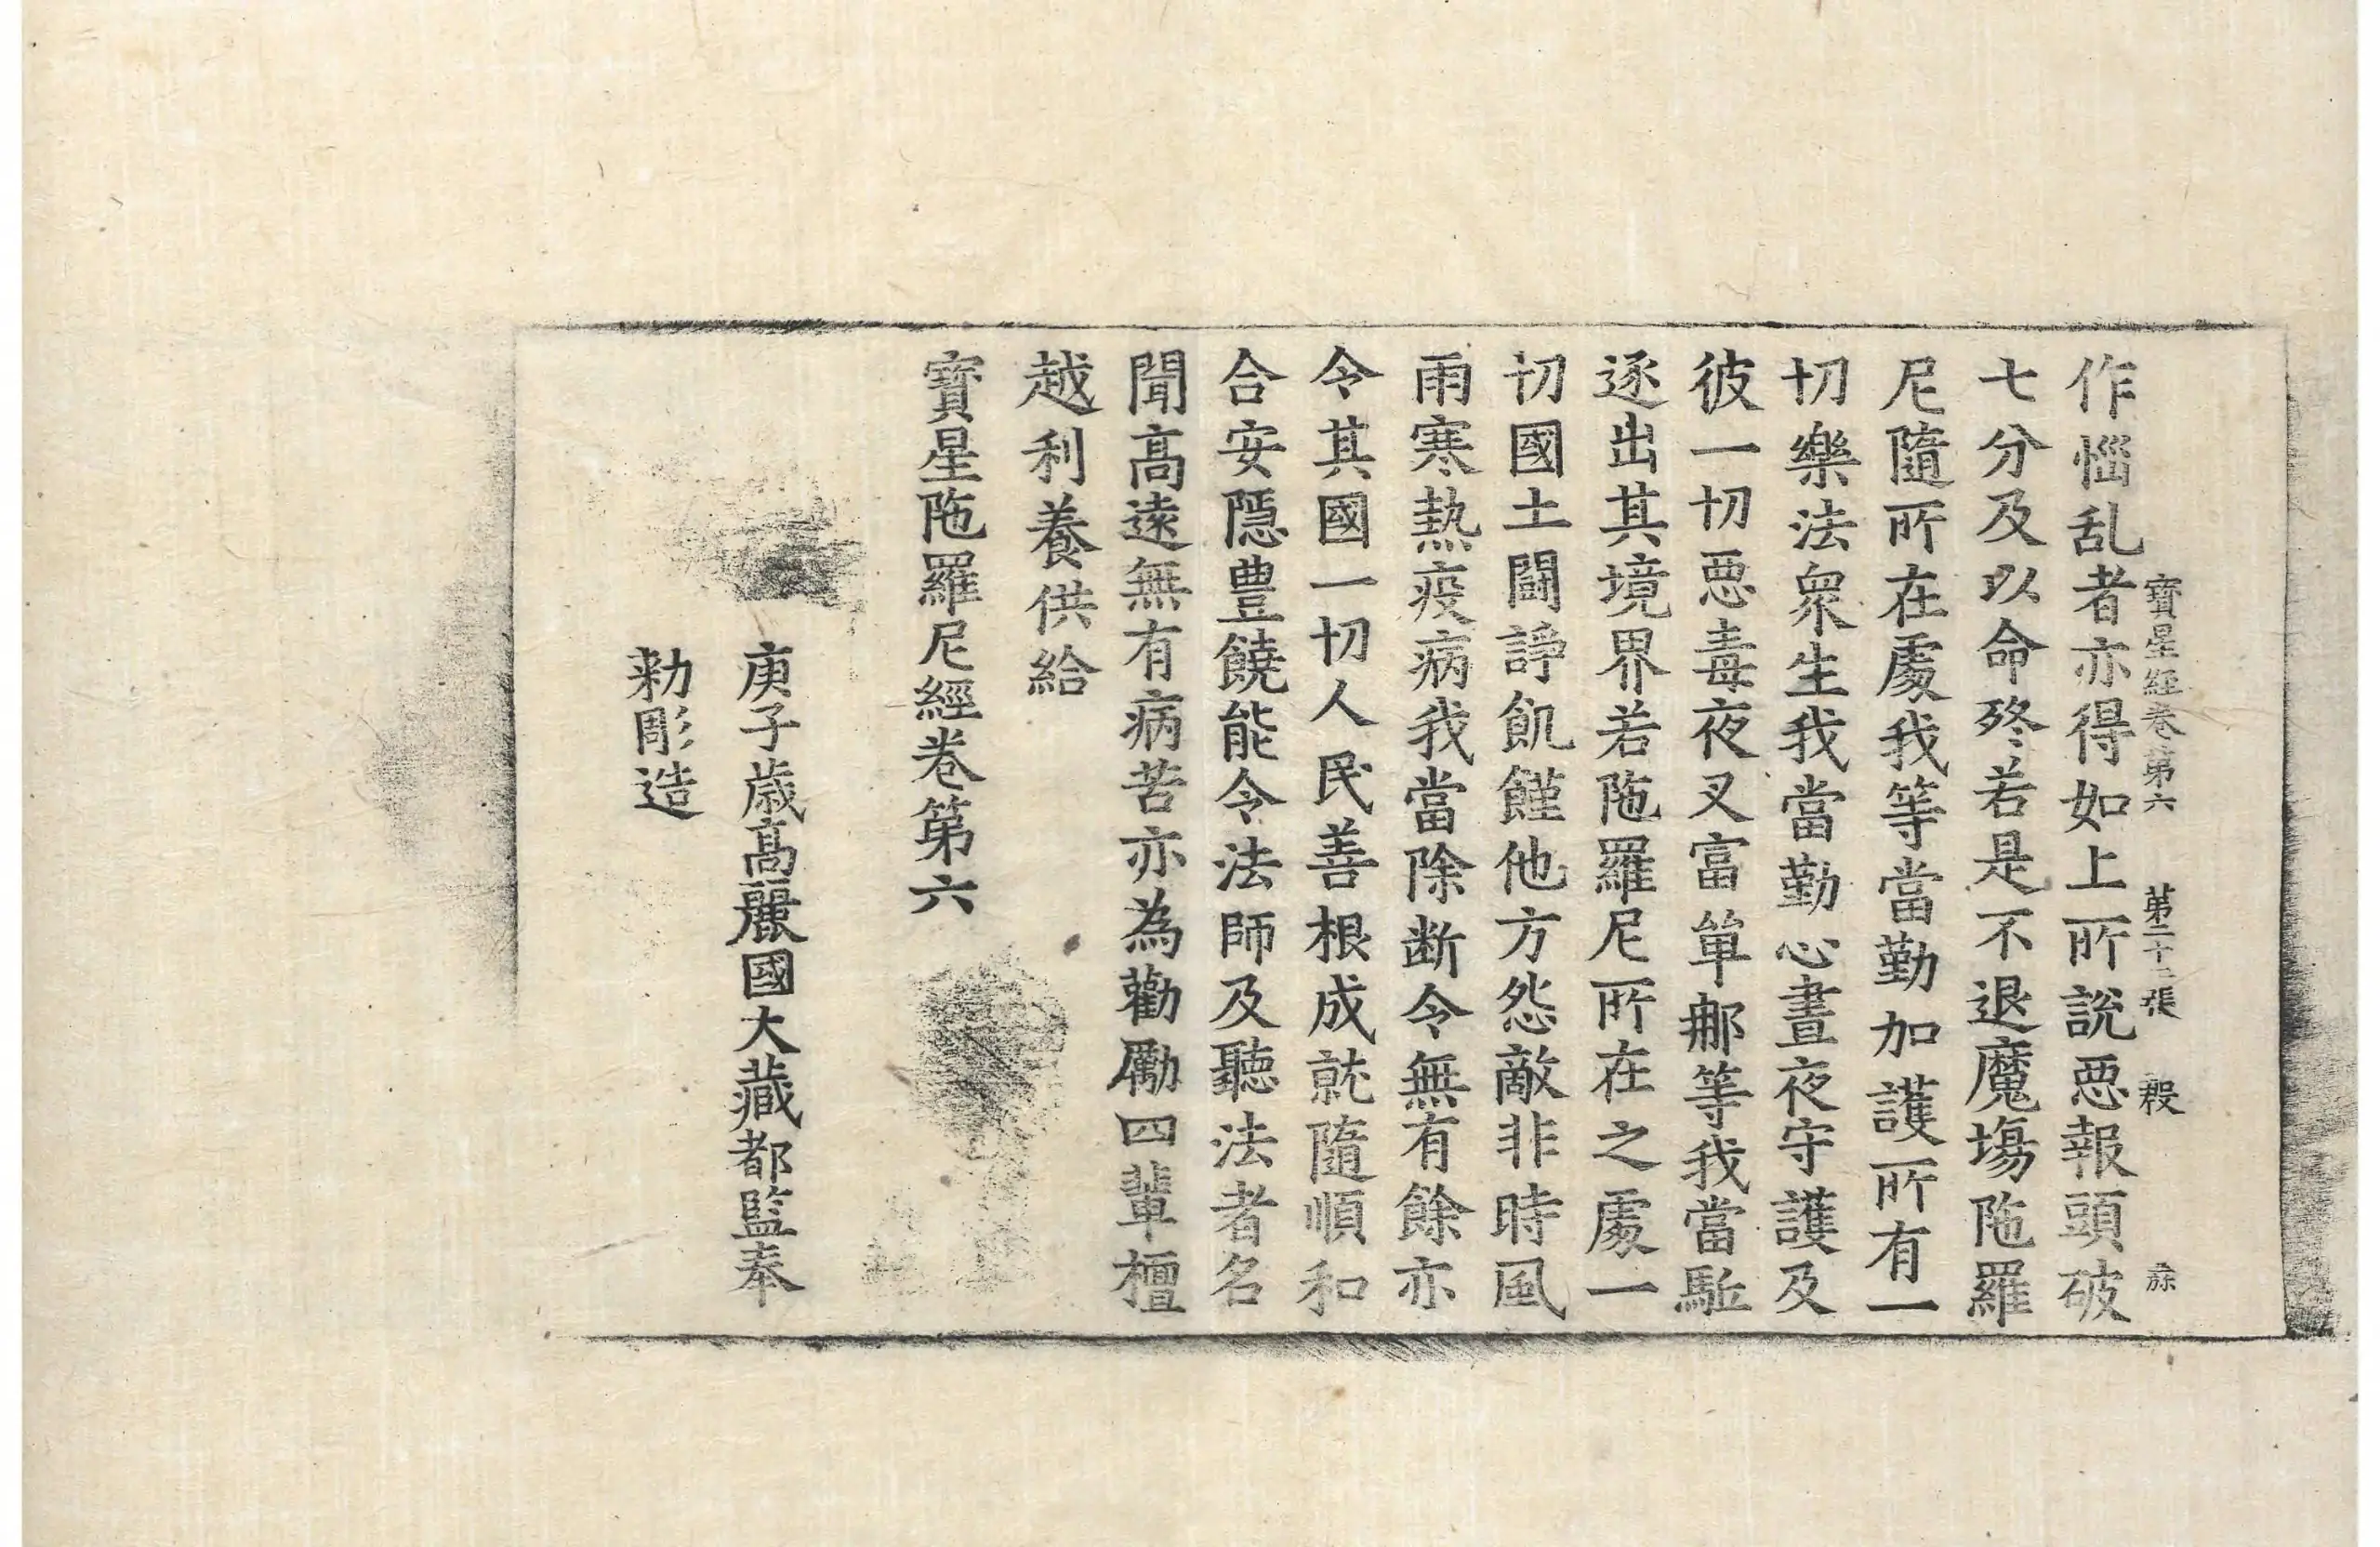 作惱乱者亦得如上所說惡報頭破
寶星經卷第六 第二十二張 殷
七分及以命終若是不退魔塲陁羅
尼隨所在處我等當勤加護所有一
切樂法衆生我當勤心晝夜守護及
彼一切惡毒夜叉富單那等我當駈
逐出其境界若陁羅尼所在之處一
切國土鬪諍飢饉他方怨敵非時風
雨寒熱疫病我當除断令無有餘亦
令其國一切人民善根成就隨順和
合安隱豊饒能令法師及聽法者名
聞高遠無有病苦亦為勸勵四輩檀
越利養供給
寶星陁羅尼經卷第六
庚子歲高麗國大藏都監奉
勑彫造